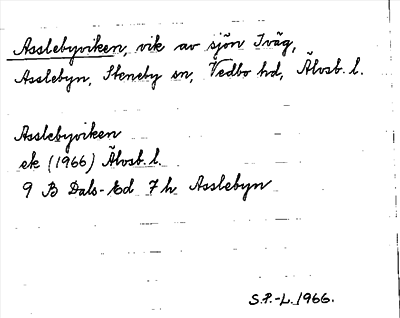 Asslebyviken, vik av sjön Iväg,
Asslebyn, Steneby sn, Vedbo hd, Älvsb. l.
Asslebyviken
ek (1966) Älvsb. l.
9 B Dals-Ed 7 h Asslebyn
S.P.-L. 1966.